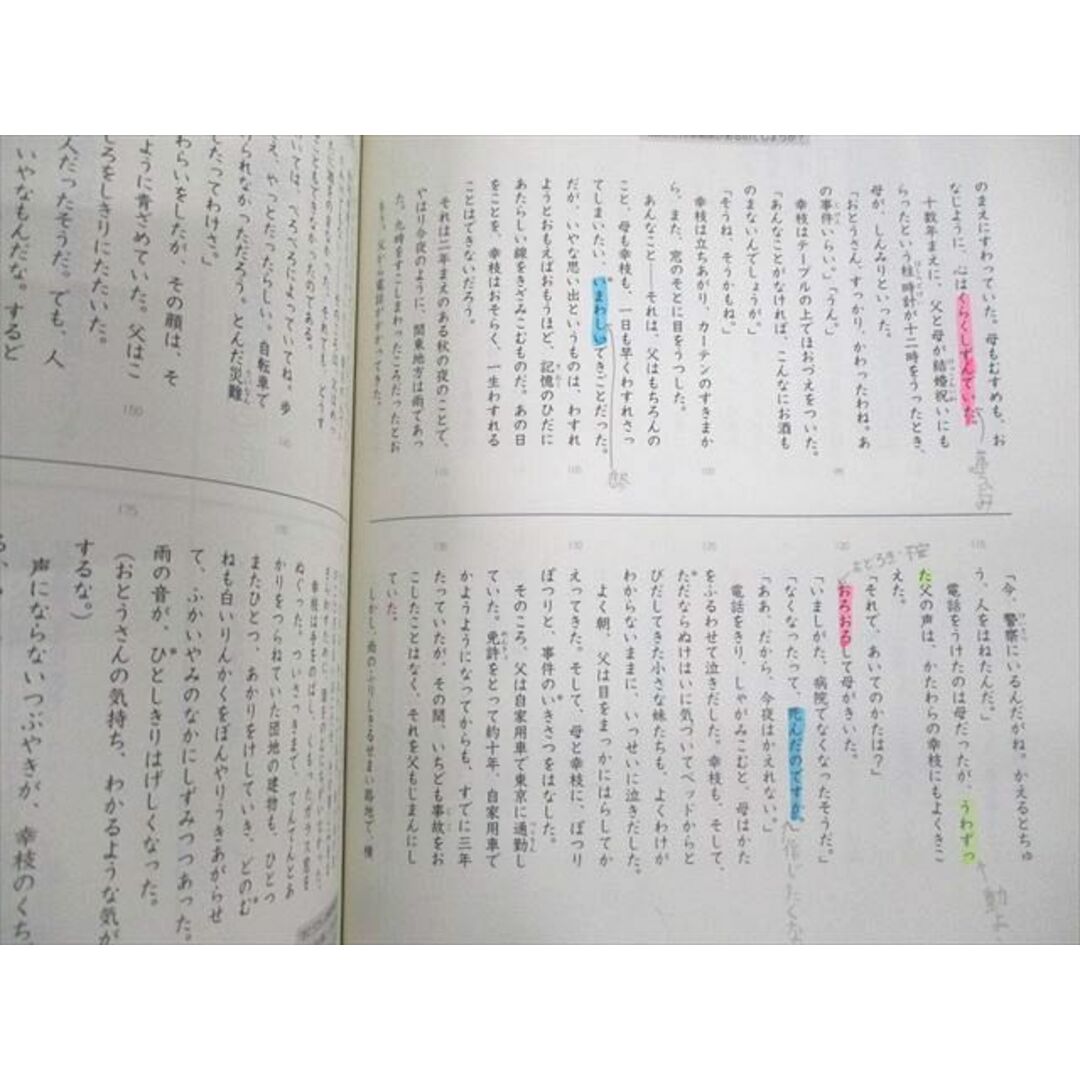 のまえにすわっていた。母もむすめも、お
なじように、心はくらくしずんでいた。
十数年まえに、父と母が結婚祝いにも
らったという柱時計が十二時をうったとき、
母が、しんみりといった。
「おとうさん、すっかり、かわったわね。あ
の事件いらい。」「うん。」
幸枝はテーブルの上でほおづえをついた。
「あんなことがなければ、こんなにお酒も
のまないんでしょうが。」
「そうね、そうかもね。」
幸枝は立ちあがり、カーテンのすきまか
ら、また、窓のそとに目をうつした。
あんなこと──それは、父はもちろんの
こと、母も幸枝も、一日も早くわすれさっ
てしまいたい、いまわしいできごとだった。
だが、いやな思い出というものは、わすれ
ようとおもえばおもうほど、記憶のひだに
あたらしい線をきざみこむものだ。あの日
をことを、幸枝はおそらく、一生わすれる
ことはできないだろう。
それは二年まえのある秋の夜のことで、
やはり今夜のように、関東地方は雨であっ
た。九時をすこしまわったころだったとお
もう。父から電話がかかってきた。
「今、警察にいるんだがね。かえるとちゅ
う、人をはねたんだ。」
電話をうけたのは母だったが、うわずっ
た父の声は、かたわらの幸枝にもよくきこ
えた。
「それで、あいてのかたは？」
おろおろして母がきいた。
「いましがた、病院でなくなったそうだ。」
「なくなったって、死んだのですか。」
「ああ、だから、今夜はかえれない。」
電話をきり、しゃがみこむと、母はかた
をふるわせて泣きだした。幸枝も、そして、
ただならぬけはいに気づいてベッドからと
びだしてきた小さな妹たちも、よくわけが
わからないままに、いっせいに泣きだした。
よく朝、父は目をまっかにはらしてか
えってきた。そして、母と幸枝に、ぽつり
ぽつりと、事件のいきさつをはなした。
そのころ、父は自家用車で東京に通勤し
ていた。免許をとって約十年、自家用車で
かようようになってからも、すでに三年
たっていたが、その間、いちども事故をお
こしたことはなく、それを父もじまんにし
ていた。
しかし、雨のふりしきるせまい路地で、横
いては、べろべろによっていてね。歩
え、やっとだったらしい。自転車で
けられなかっただろう。とんだ災難
したってわけさ。」
わらいをしたが、その顔は、そ
ように青ざめていた。父はこ
しろをしきりにたたいた。
人だったそうだ。でも、人
いやなもんだな。すると
ぬぐった。ついさっきまで、てんてんとあ
かりをつらねていた団地の建物も、ひとつ
またひとつ、あかりをけしていき、どのむ
ねも白いりんかくをぼんやりうきあがらせ
て、ふかいやみのなかにしずみつつあった。
雨の音が、ひとしきりはげしくなった。
（おとうさんの気持ち、わかるような気が
するな。）
声にならないつぶやきが、幸枝のくち